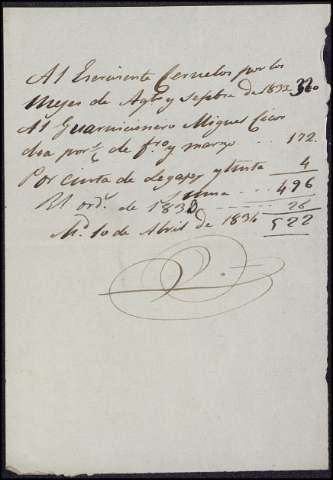 Al Escriviente Ceruelos por los
Meses de Agto y Setbre de 1833 320
Al Guarnicionero Miguel Cicu
dea por ct de fro y marzo ... 172.
Por cinta de Legajos y tinta 4
Suma ... 496
Rl ordn. de 1833 ... 26
Md. 10 de Abril de 1834 522